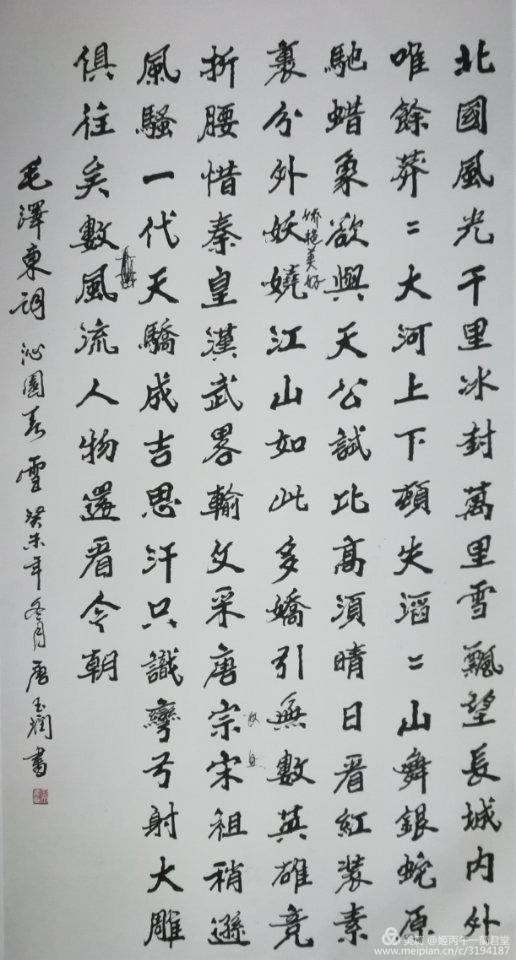 北國風光千里冰封萬里雪飄望長城内外
唯餘莽〻大河上下頓失滔〻山舞銀蛇原
馳蜡象欲與天公試比高須晴日看紅裝素
裹分外妖嬈江山如此多嬌引無數英雄竞
美好
折腰惜秦皇漢武畧輸文采唐宗宋祖稍遜
風騷一代天驕成吉思汗只識彎弓射大雕
俱往矣數風流人物還看今朝
毛澤東詞沁園春雪癸未年冬月唐玉潤書
美篇 @姬丙午一蔺君堂
www.meipian.cn/c/3194187